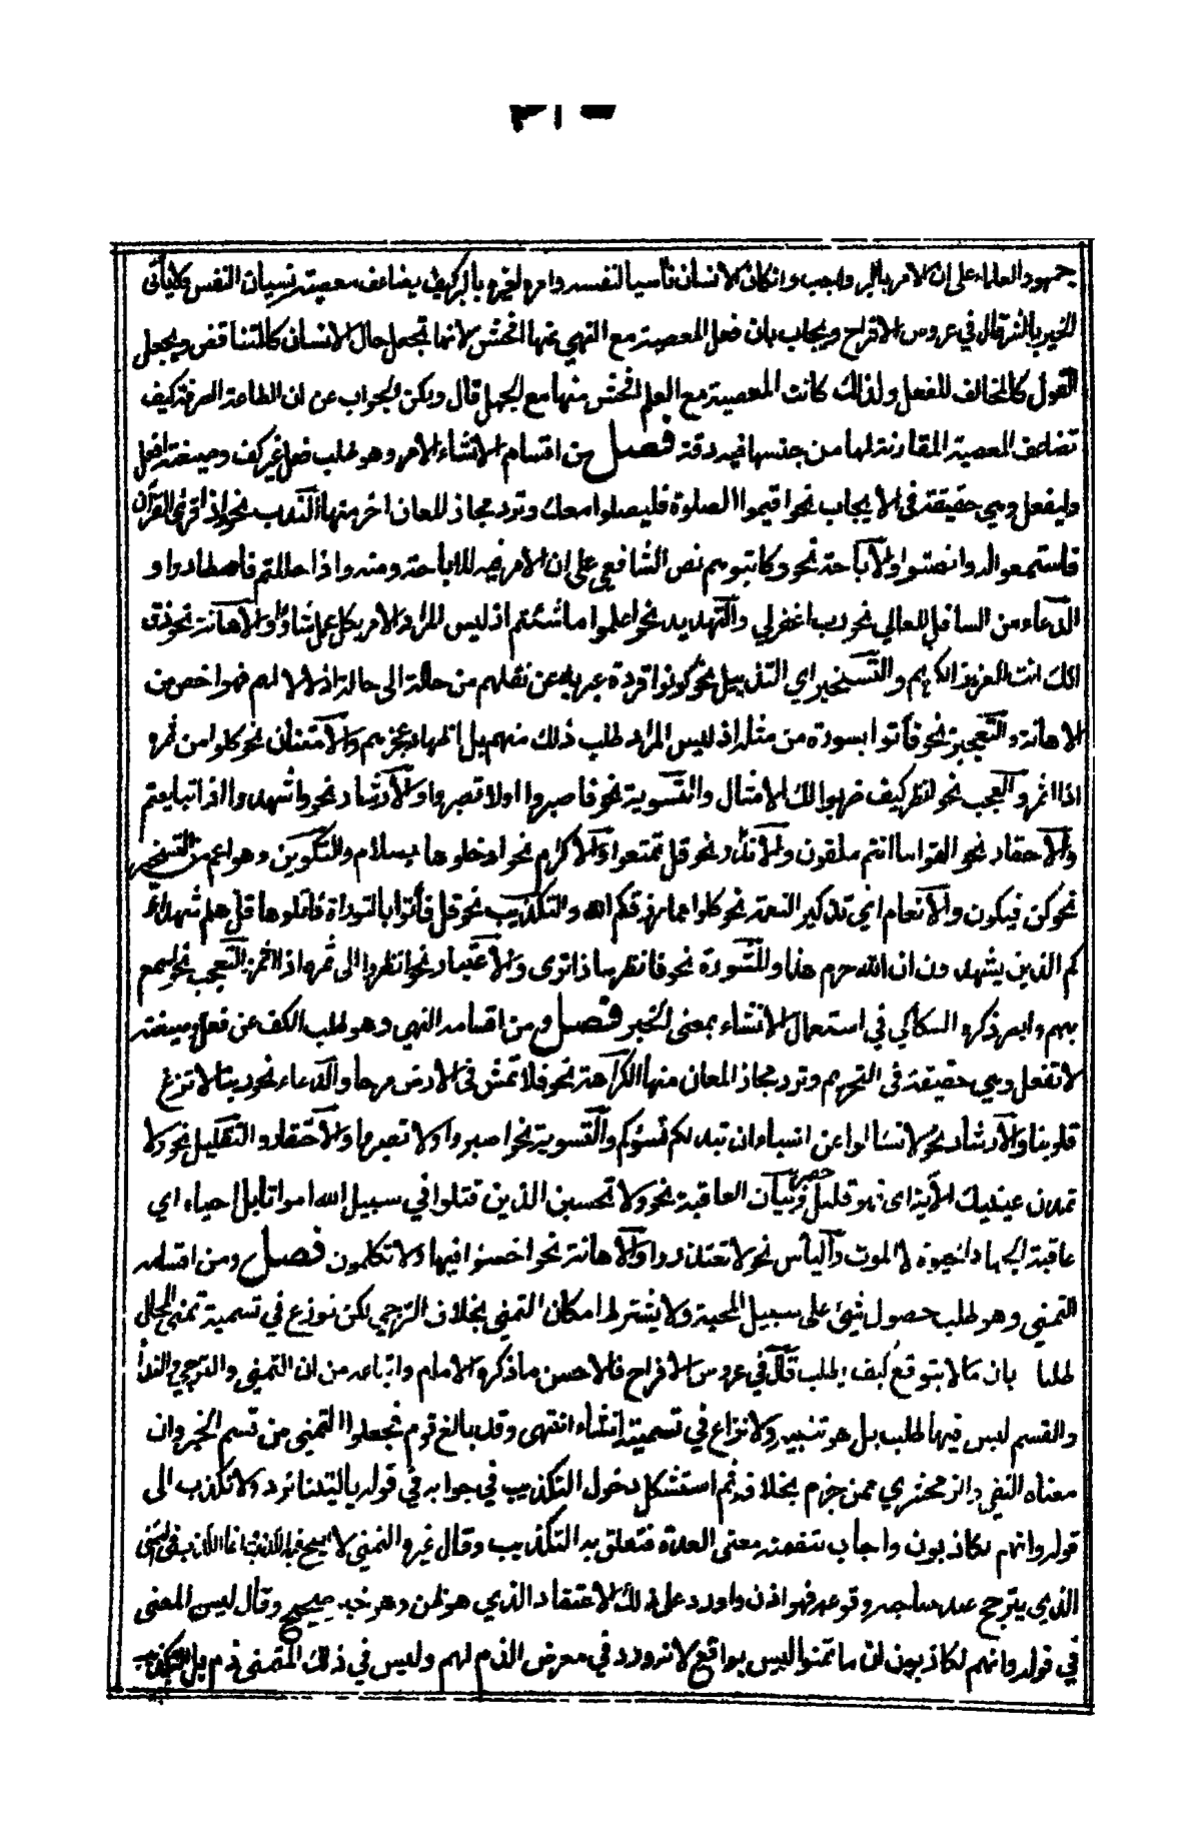 جمهور العلماء على ان الامر بالبر واجب وان كان الانسان ناسيا لنفسه وامره لغيره بالبر كيف يضاعف معصية نسيان النفس ولا يأتى
الخير بالشر قال في عروس الافراح ويجاب بان فعل المعصية مع النهي عنها افحش لانها تجعل حال الانسان كالمتناقض ويجعل
القول كالمخالف للفعل ولذلك كانت المعصية مع العلم افحش منها مع الجهل قال ولكن الجواب عن ان الطاعة الصرفة كيف
تضاعف المعصية المقارنة لها من جنسها فيه دقة فصل من اقسام الانشاء الامر وهو طلب فعل غير كف وصيغته افعل
وليفعل وهي حقيقة في الايجاب نحو اقيموا الصلوة فليصلوا معك وترد مجازا لمعان اخر منها الندب نحو واذا قرئ القرآن
فاستمعوا له وانصتوا والاباحة نحو وكاتبوهم نص الشافعي على ان الامر فيه للاباحة ومنه واذا حللتم فاصطادوا و
الدعاء من السافل للعالي نحو رب اغفر لي والتهديد نحو اعملوا ما شئتم اذ ليس المراد الامر بكل عمل شاؤا والاهانة نحو ذق
انك انت العزيز الكريم والتسخير اي التذليل نحو كونوا قردة عبر به عن نقلهم من حالة الى حالة اذلالا لهم فهو اخص من
الاهانة والتعجيز نحو فأتوا بسورة من مثله اذ ليس المراد طلب ذلك منهم بل اظهار عجزهم والامتنان نحو كلوا من ثمره
اذا اثمر والعجب نحو انظر كيف ضربوا لك الامثال والتسوية نحو فاصبروا اولا تصبروا والارشاد نحو واشهدوا اذا تبايعتم
والاحتقار نحو القوا ما انتم ملقون والانذار نحو قل تمتعوا والاكرام نحو ادخلوها بسلام والتكوين وهو اعم من التسخير
نحو كن فيكون والانعام اي تذكير النعمة نحو كلوا مما رزقكم الله والتكذيب نحو قل فأتوا بالتوراة فاتلوها قل هلم شهداء
كم الذين يشهدون ان الله حرم هذا والمشورة نحو فانظر ماذا ترى والاعتبار نحو انظروا الى ثمره اذا اثمر والتعجب نحو اسمع
بهم وابصر ذكره السكاكي في استعمال الانشاء بمعنى الخبر فصل ومن اقسامه النهي وهو طلب الكف عن فعل وصيغته
لا تفعل وهي حقيقة في التحريم وترد مجازا لمعان منها الكراهة نحو ولا تمش في الارض مرحا والدعاء نحو ربنا لا تزغ
قلوبنا والارشاد نحو لا تسألوا عن اشياء ان تبد لكم تسؤكم والتسوية نحو اصبروا او لا تصبروا والاحتقار والتقليل نحو ولا
تمدن عينيك الآية اى فهو قليل حقير وبيان العاقبة نحو ولا تحسبن الذين قتلوا في سبيل الله امواتا بل احياء اي
عاقبة الجهاد الحيوة لا الموت واليأس نحو لا تعتذروا والاهانة نحو اخسئوا فيها ولا تكلمون فصل ومن اقسامه
التمني وهو طلب حصول شئ على سبيل المحبة ولا يشترط امكان التمني بخلاف الترجي لكن نوزع في تسمية تمني المحال
طلبا بان ما لا يتوقع كيف يطلب قال في عروس الافراح فالاحسن ما ذكره الامام واتباعه من ان التمني والترجي والندأ
والقسم ليس فيها طلب بل هو تنبيه ولا نزاع في تسميته انشاء انتهى وقد بالغ قوم فجعلوا التمني من قسم الخبر وان
معناه النفي والزمخشري ممن جزم بخلافه ثم استشكل دخول التكذيب في جوابه في قوله يا ليتنا نرد ولا نكذب الى
قوله وانهم لكاذبون واجاب بتضمنه معنى العدة فتعلق به التكذيب وقال غيره التمني لا يصح فيه الكذب وانما الكذب في المتمنى
الذي يترجح عند صاحبه وقوعه فهو اذن وارد على ذلك الاعتقاد الذي هو ظن وهو خبر صحيح وقال ليس المعنى
في قوله وانهم لكاذبون ان ما تمنوا ليس بواقع لانه ورد في معرض الذم لهم وليس في ذلك المتمنى ذم بل التكذيب